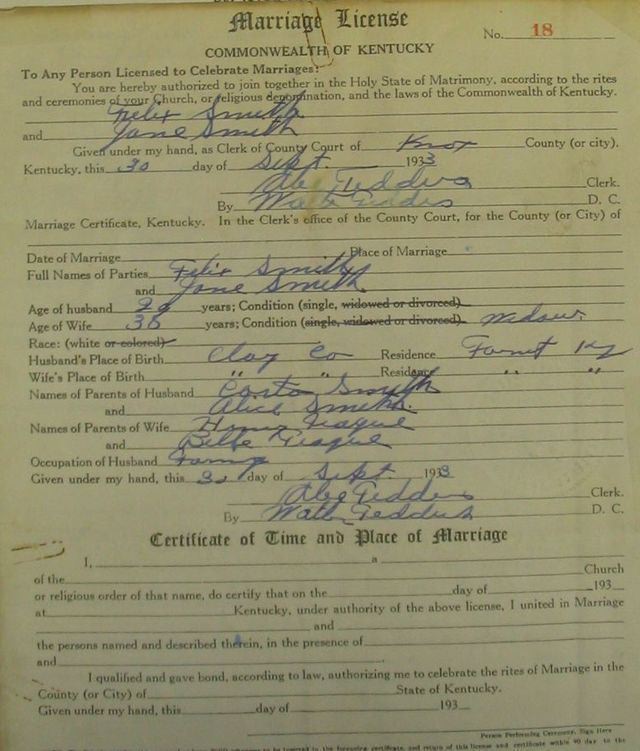 Marriage License
No. 18
COMMONWEALTH OF KENTUCKY
To Any Person Licensed to Celebrate Marriages:
You are hereby authorized to join together in the Holy State of Matrimony, according to the rites
and ceremonies of your Church, or religious denomination, and the laws of the Commonwealth of Kentucky.
Felix Smith
and Jane Smith
Given under my hand, as Clerk of County Court of Knox County (or city),
Kentucky, this 30 day of Sept. 1933
Clerk.
By D. C.
Marriage Certificate, Kentucky. In the Clerk's office of the County Court, for the County (or City) of
Date of Marriage Place of Marriage
Full Names of Parties Felix Smith
and Jane Smith
Age of husband years; Condition (single, widowed or divorced)
Age of Wife years; Condition (single, widowed or divorced) Widow.
Race: (white or colored)
Husband's Place of Birth Clay Co Residence Ky
Wife's Place of Birth " " Residence " "
Names of Parents of Husband Smith
and Alice Smith.
Names of Parents of Wife
and
Occupation of Husband
Given under my hand, this day of Sept. 1933
Clerk.
By D. C.
Certificate of Time and Place of Marriage
I, a
of the Church
or religious order of that name, do certify that on the day of 193
at Kentucky, under authority of the above license, I united in Marriage
and
the persons named and described therein, in the presence of
and
I qualified and gave bond, according to law, authorizing me to celebrate the rites of Marriage in the
County (or City) of State of Kentucky.
Given under my hand, this day of 193
Person Performing Ceremony, Sign Here